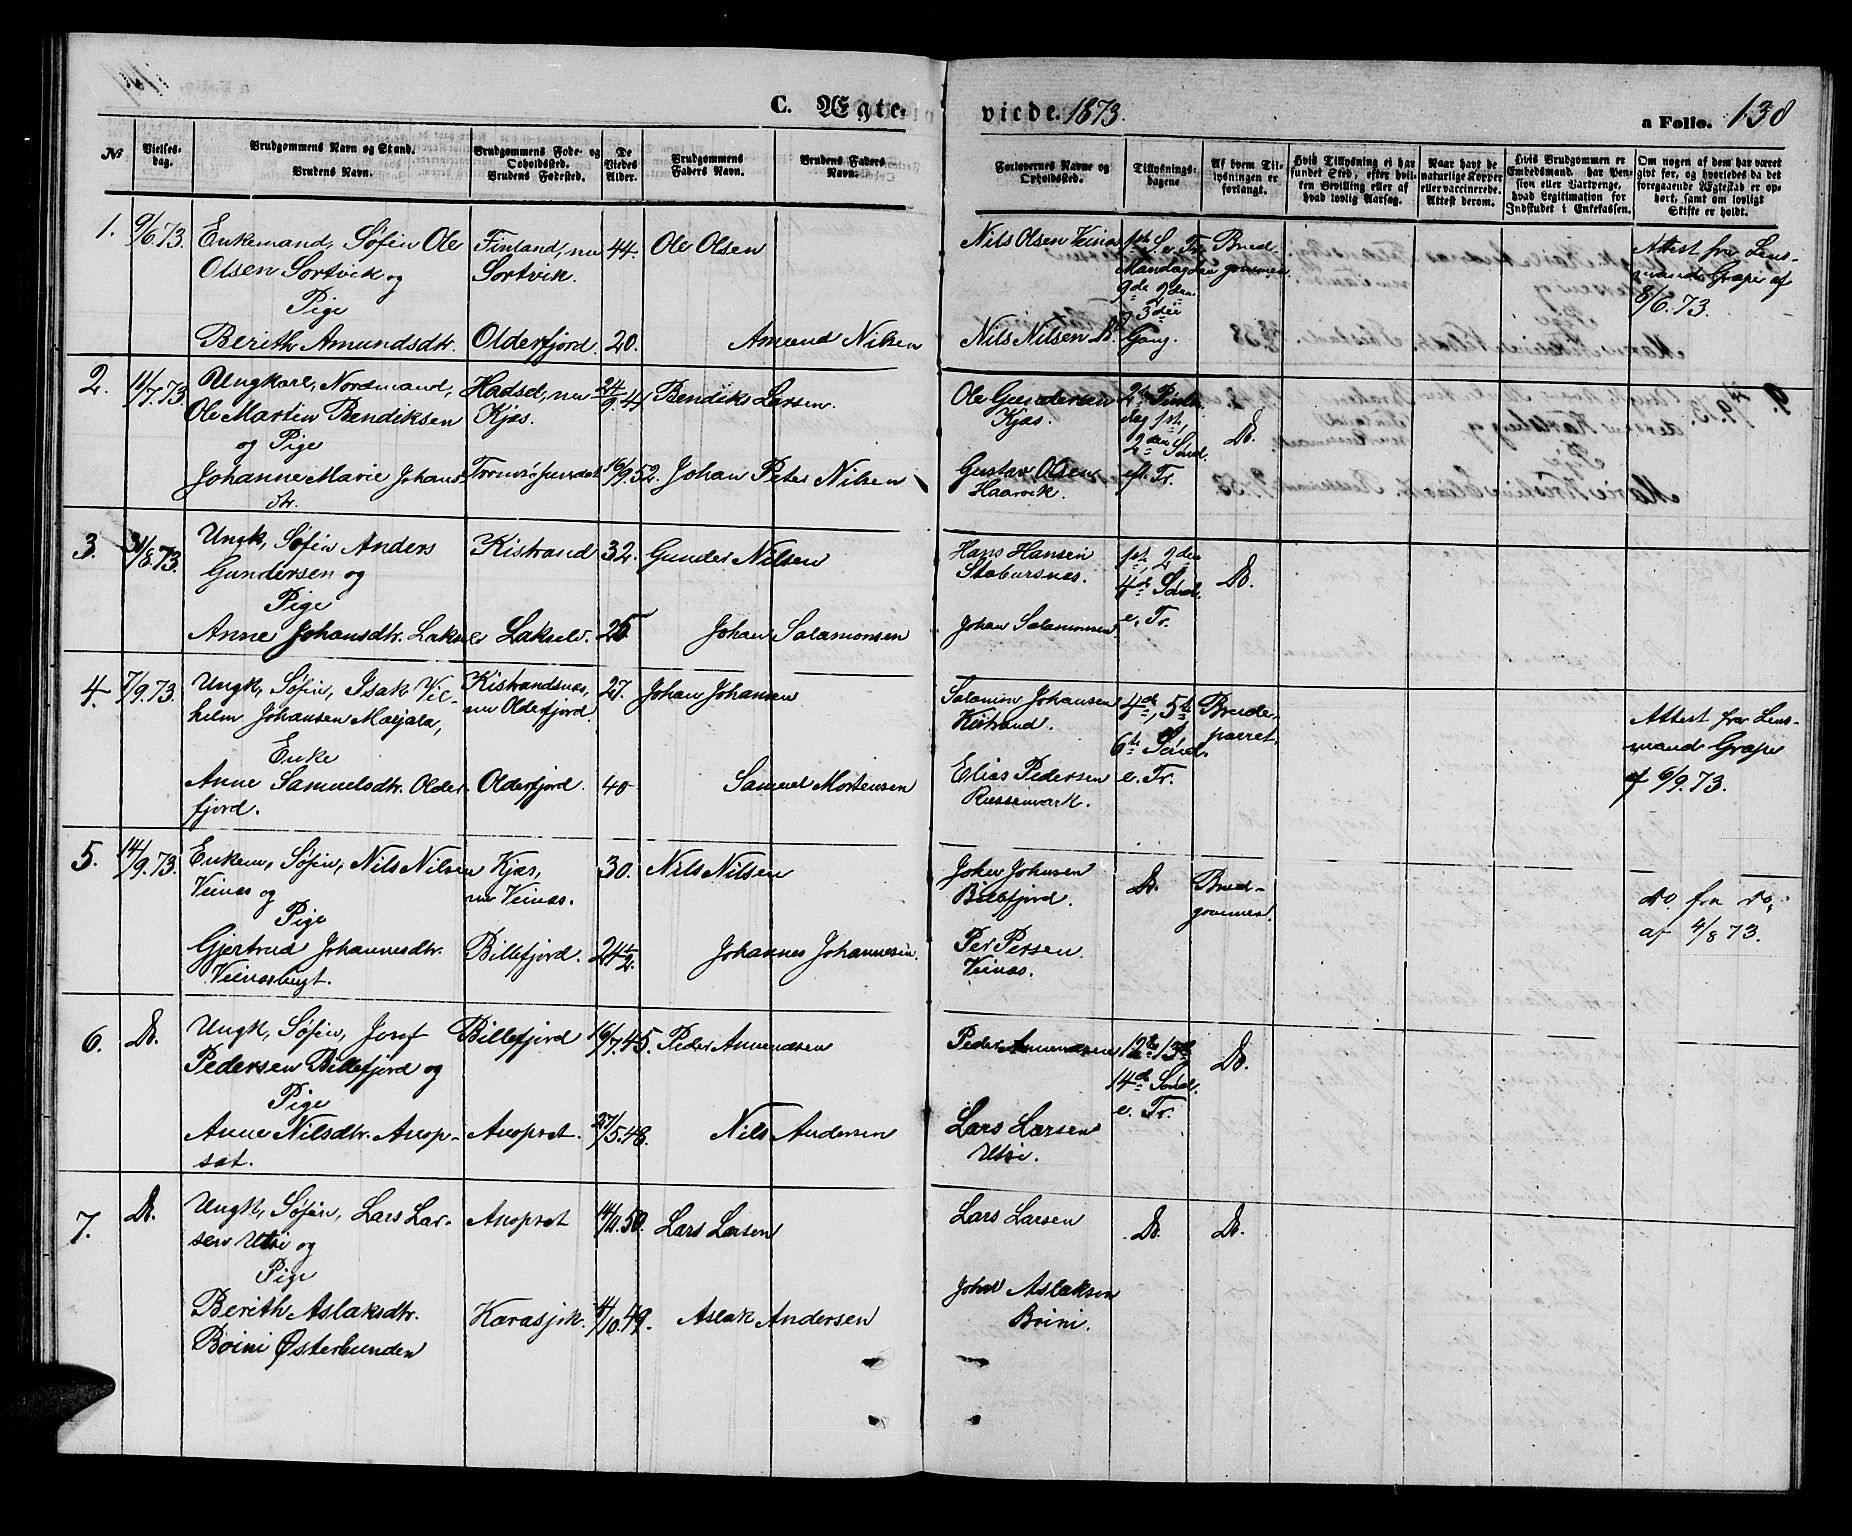 C. Ægte- viede. 1873. a Folio. 138
No
Vielses-
dag.
Brudgommens Navn og Stand.
Brudens Navn.
Brudgommens Føde- og
Opholdssted.
Brudens Fødested.
De
Viedes
Alder.
Brudgommens
Faders Navn.
Brudens Faders
Navn.
Forlovernes Navne og
Opholdssted.
Tillysnings-
dagene
Af hvem Til-
lysningen er
forlangt.
Hvis Tillysning ei har
fundet Sted, efter hvil-
ken Bevilling eller af
hvad lovlig Aarsag.
Naar havt de
naturlige Kopper
eller vaccinerede.
Attest derom.
Hvis Brudgommen er
Embedsmand, har Pen-
sion eller Vartpenge,
hvad Legitimation for
Indskudet i Enkekassen.
Om nogen af dem har været
gift før, og hvorledes da det
foregaaende Ægteskab er op-
hørt, samt om lovligt
Skifte er holdt.
1. 9/6.73. Enkemand, Søfin Ole
Olsen Sortvik og
Pige
Berith Amundsdtr.
Finland, nu
Sortvik.
Olderfjord.
44.
20.
Ole Olsen
Amund Nilsen
Nils Olsen Veinæs
Nils Nilsen Do.
1ste S. e. Tr.
Mandag den
9de 2den
3die
Gang.
Brud-
gommen.
Attest fra Lens-
mand Grape af
8/6.73.
2. 11/7.73. Ungkarl, Nordmand,
Ole Martin Bendiksen
og Pige
Johanne Marie Johans-
dtr.
Hadsel, nu
Kjæs.
Tromsøsundet
24/9.41
16/9.52.
Bendiks Larsen.
Johan Peter Nilsen
Ole Gundersen
Kjæs.
Gustav Olsen
Haarvik.
2den Pintse-
dag 1ste,
2den Sønd.
eft. Tr.
Do.
3. 31/8.73. Ungk, Søfin Anders
Gundersen og
Pige
Anne Johansdtr. Lakselv
Kistrand
Lakselv.
32.
25
Gunder Nilsen
Johan Salamonsen
Hans Hansen
Stabursnæs.
Johan Salamonsen
1ste, 2den
4de Sønd.
e. Tr.
Do.
4. 7/9.73. Ungk, Søfin, Isak Vil-
helm Johansen Marjala,
Enke
Anne Samuelsdtr. Older-
fjord.
Kistrandsnæs,
nu Olderfjord.
Olderfjord.
27.
40
Johan Johansen
Samuel Mortensen
Salamon Johansen
Kistrand.
Elias Pedersen
Russemark.
4de, 5te
6te Sønd.
e. Tr.
Brude-
parret.
Attest fra Lens-
mand Grape
af 6/9.73.
5. 14/9.73. Enkem, Søfin, Nils Nilsen
Veinæs og
Pige
Gjertrud Johannesdtr.
Veinæsbugt.
Kjæs,
nu Veinæs.
Billefjord.
30.
24 1/2.
Nils Nilsen
Johannes Johannesen.
Joker Johnsen
Billefjord.
Per Persen
Veinæs.
Do.
Brud-
gommen.
do. fra do.
af 4/8 73.
6. Do. Ungk, Søfin, Josef
Pedersen Billefjord og
Pige
Anne Nilsdtr. Anop-
sæt.
Billefjord
Anopsæt.
16/7.45.
27/5.48.
Peder Amundsen
Nils Andersen
Peder Amundsen
Lars Larsen
Utsi.
12te 13de
14de Sønd.
e. Tr.
Do.
7. Do. Ungk, Søfin, Lars Lar-
sen Utsi og
Pige
Berith Aslaksdtr.
Boini Østerbunden
Anopsæt
Karasjok.
14/11.50.
4/10.49.
Lars Larsen
Aslak Andersen
Lars Larsen
John Aslaksen
Boini.
Do.
Do.